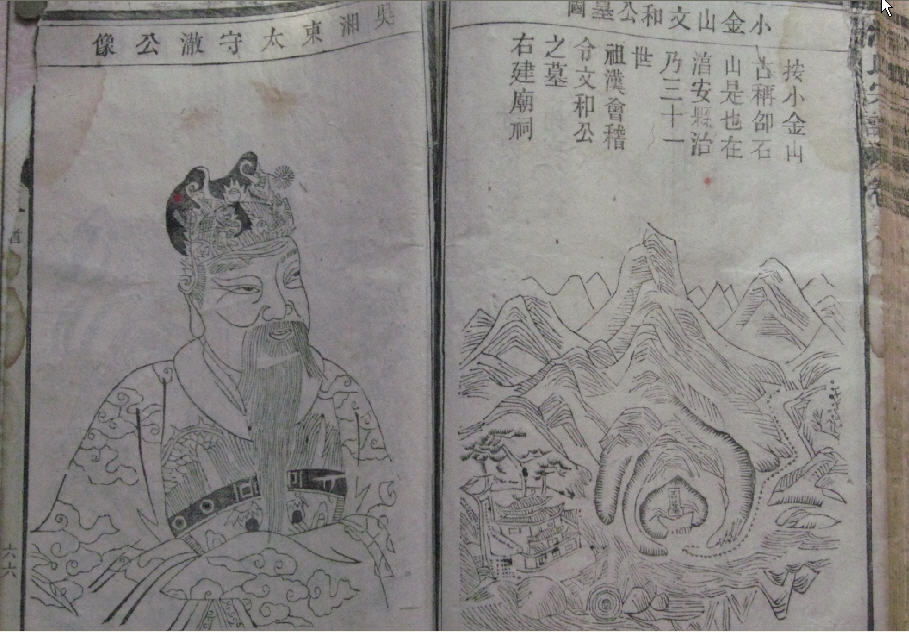 小金山文和公墓圖
按小金山
古稱卻石
山是也在
湻安縣治
乃三十一
世
祖漢會稽
令文和公
之墓
右建廟祠
吳湘東太守澈公像
六六